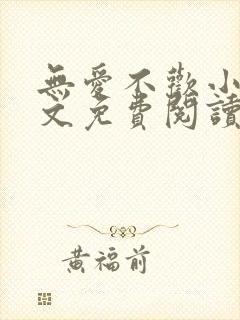 無愛不歡小
文免費閱讀
黃福前